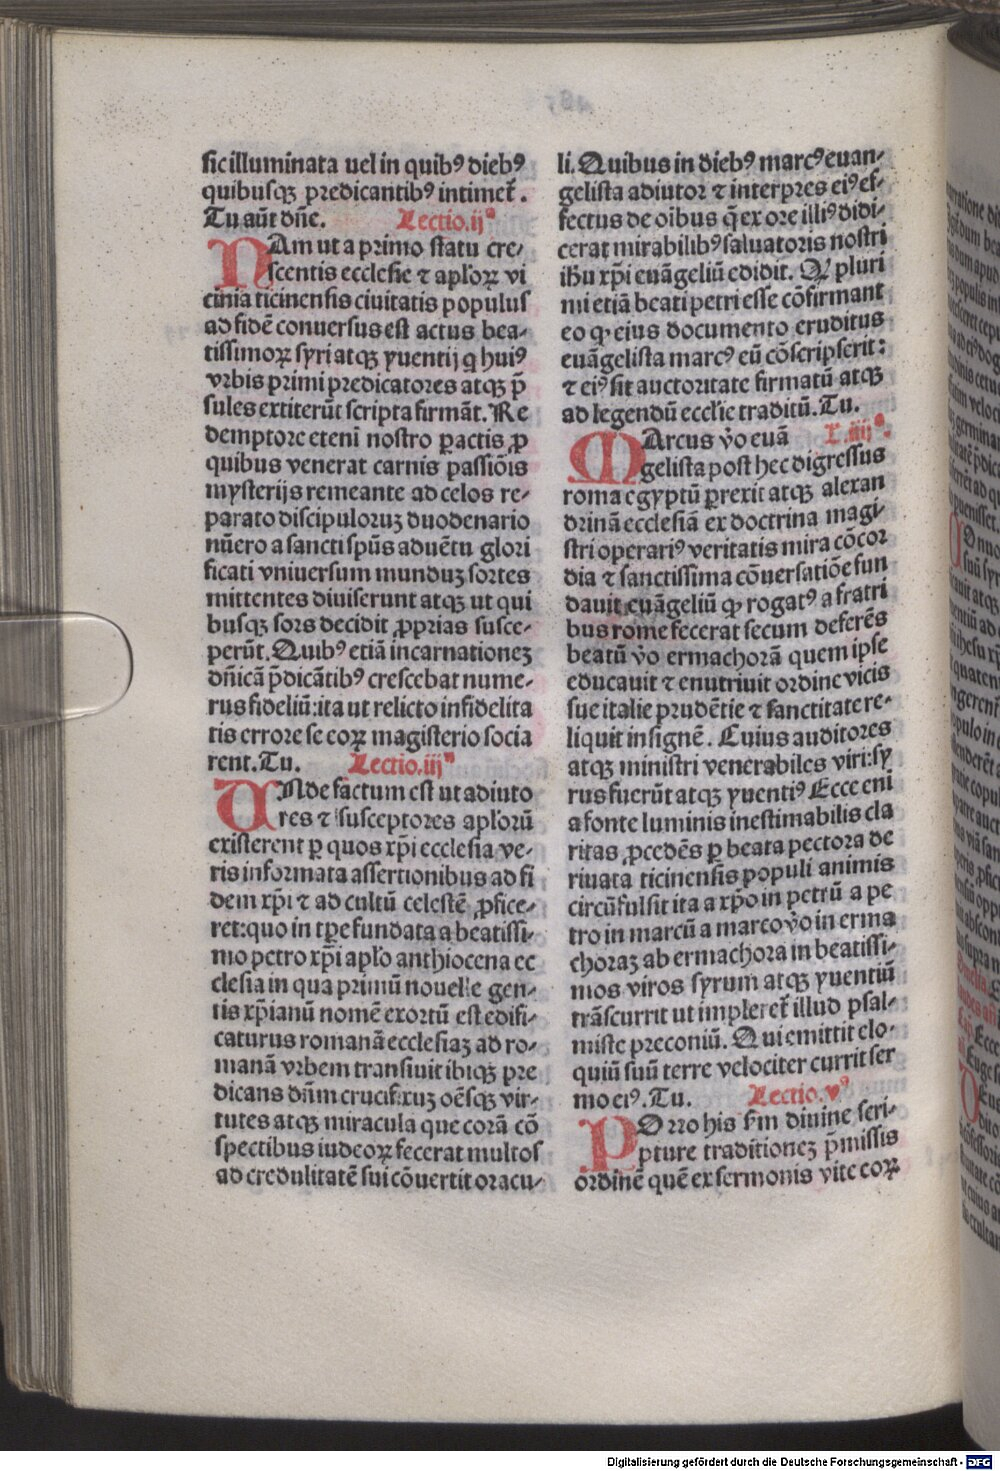 sic illuminata vel in quibꝰ diebꝰ
quibusqꝫ predicantibꝰ intimet̃.
Tu aũt dñe. Lectio.ijª
NAm ut a primo statu cre-
scentis ecclesie ⁊ apl'oꝝ vi
cinia ticinensis ciuitatis populus
ad fidẽ conuersus est actus bea-
tissimoꝝ syri atqꝫ yuentij q huiꝰ
vrbis primi predicatores atqꝫ p̃
sules extiterũt scripta firmãt. Re
demptore eteni nostro ꝑactis ꝓ
quibus venerat carnis passiõis
mysterijs remeante ad celos re-
parato discipuloruꝫ duodenario
nũero a sancti spũs aduẽtu glori
ficati vniuersum munduꝫ sortes
mittentes diuiserunt atqꝫ ut qui
busqꝫ sors decidit ꝓprias susce-
perũt. Quibꝰ etiã incarnationeꝫ
dñicã p̃dicãtibꝰ crescebat nume-
rus fideliũ: ita ut relicto infidelita
tis errore se eoꝝ magisterio socia
rent. Tu. Lectio.iijª
UNde factum est ut adiuto
res ⁊ susceptores apl'orũ
existerent ꝑ quos xp̃i ecclesia ve-
ris informata assertionibus ad fi
dem xp̃i ⁊ ad cultũ celestẽ ꝓfice-
ret: quo in tp̃e fundata a beatissi-
mo petro xp̃i apl'o anthiocena ec
clesia in qua primũ nouelle gen-
tis xp̃ianũ nomẽ exortũ est edifi-
caturus romanã ecclesiaꝫ ad ro-
manã vrbem transiuit ibiqꝫ pre
dicans dñm crucifixuꝫ oẽsqꝫ vir-
tutes atqꝫ miracula que corã cõ
spectibus iudeoꝝ fecerat multos
ad credulitatẽ sui cõuertit oracu-
li. Quibus in diebꝰ marcꝰ euan-
gelista adiutor ⁊ interpres eiꝰ ef-
fectus de oĩbus q̃ ex ore illiꝰ didi-
cerat mirabilibꝰ saluatoris nostri
ihũ xp̃i euãgeliũ edidit. Qꝙ pluri
mi etiã beati petri esse cõfirmant
eo ꝙ eius documento eruditus
euãgelista marcꝰ eũ cõscripserit:
⁊ eiꝰ sit auctoritate firmatũ atqꝫ
ad legendũ eccl'ie traditũ. Tu.
MArcus v̊o euã L.iiijª.
gelista post hec digressus
roma egyptũ ꝑrexit atqꝫ alexan
drinã ecclesiã ex doctrina magi-
stri operariꝰ veritatis mira cõcor
dia ⁊ sanctissima cõuersatiõe fun
dauit euãgeliũ ꝙ rogatꝰ a fratri
bus rome fecerat secum deferẽs
beatũ v̊o ermachorã quem ipse
educauit ⁊ enutriuit ordine vicis
sue italie prudẽtie ⁊ sanctitate re-
liquit insignẽ. Cuius auditores
atqꝫ ministri venerabiles viri: sy
rus fuerũt atqꝫ yuentiꝰ Ecce eni
a fonte luminis inestimabilis cla
ritas ꝓcedẽs ꝑ beata pectora de
riuata ticinensis populi animis
circũfulsit ita a xp̃o in petrũ a pe
tro in marcũ a marco v̊o in erma
choraꝫ ab ermachora in beatissi-
mos viros syrum atqꝫ yuentiũ
trãscurrit ut impleret̃ illud psal-
miste preconiũ. Qui emittit elo-
quiũ suũ terre velociter currit ser
mo eiꝰ. Tu. Lectio.vª
POrro his s'm diuine scri-
pture traditioneꝫ p̃missis
ordinẽ quẽ ex sermonis vite eoꝝ
Digitalisierung gefördert durch die Deutsche Forschungsgemeinschaft - DFG